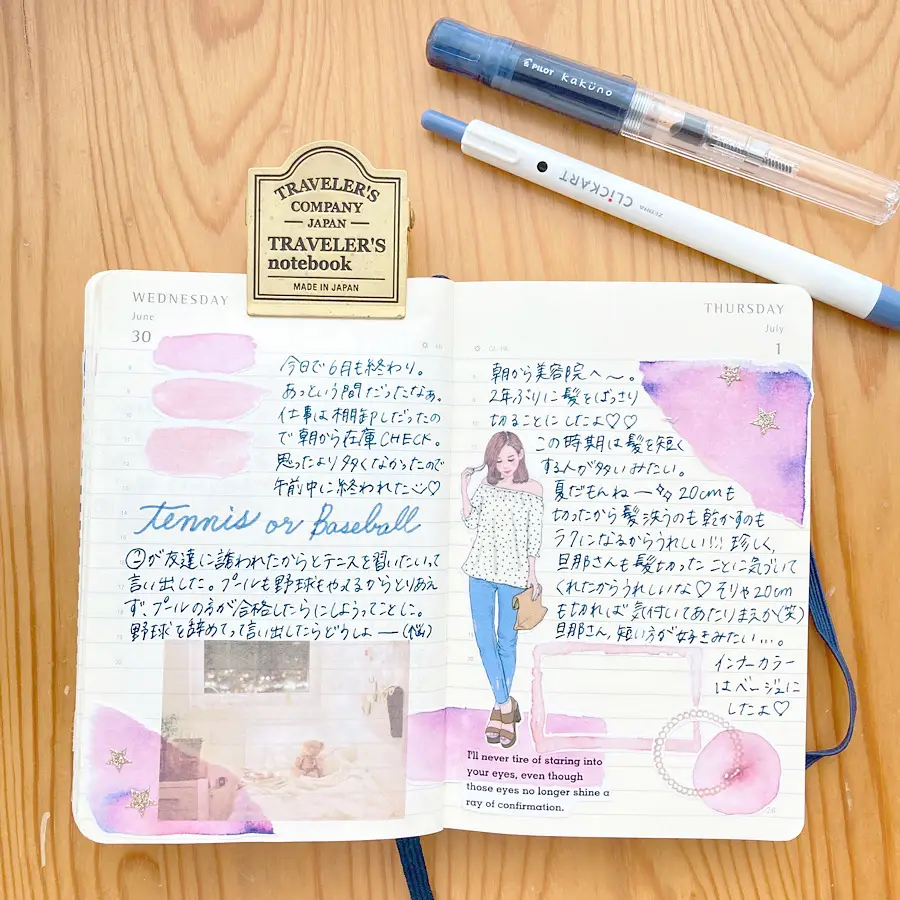 PILOT kakuno
ZEBRA CLiCKART
TRAVELER'S
COMPANY
JAPAN
TRAVELER'S
notebook
MADE IN JAPAN
WEDNESDAY
June
30
今日で6月も終わり。
あっという間だったなぁ。
仕事は棚卸しだったの
で朝から在庫CHECK。
思ったより多くなかったので
午前中に終われた♡
tennis or Baseball
が友達に誘われたからとテニスを習いたいって
言い出した。プールも野球もやってるからとりあえ
ず、プールの方が合格したらにしようってことに。
野球を辞めてって言い出したらどうしよー(悩)
THURSDAY
July
1
朝から美容院へ〜。
2年ぶりに髪をばっさり
切ることにしたよ♡♡
この時期は髪を短く
する人が多いみたい。
夏だもんねー 20cmも
切ったから髪洗うのも乾かすのも
ラクになるからうれしい!!! 珍しく、
旦那さんも髪切ったことに気づいて
くれたからうれしいな♡ そりゃ20cm
も切れば気付いてあたりまえか(笑)
旦那さん、短い方が好きみたい…。
インナーカラー
はベージュに
したよ♡
I'll never tire of staring into
your eyes, even though
those eyes no longer shine a
ray of confirmation.